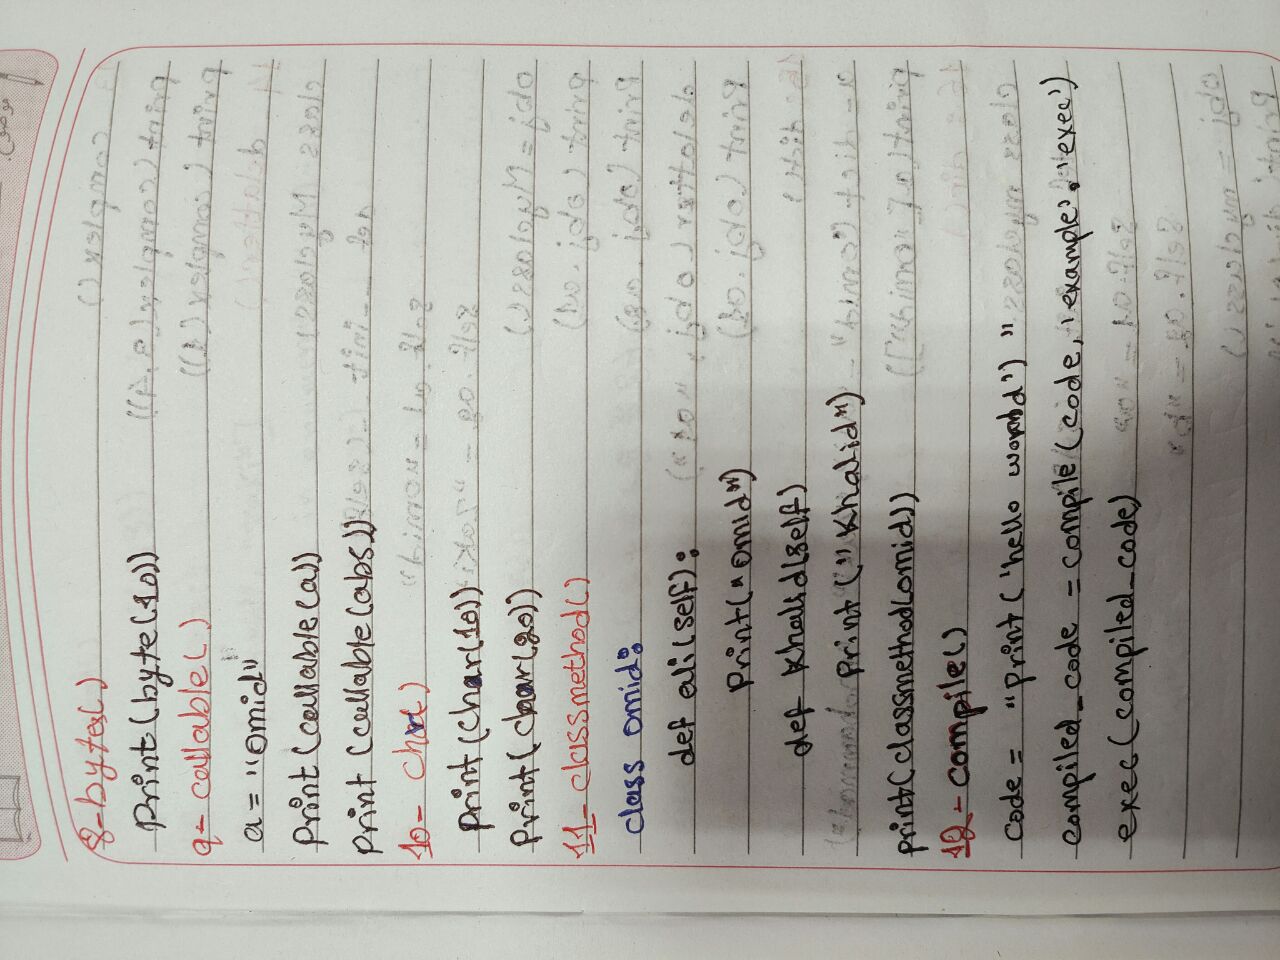 8-bytes()
print(byte(10))
9- callable()
a = "omid"
print(callable(a))
print(callable(abs))
10- char()
print(char(10))
print(char(20))
11- classmethod()
class omid:
def ali(self):
print("omid")
def khalid(self)
print("khalid")
print(classmethod(omid))
12- compile()
code = "print('hello world')"
compiled_code = compile(code, 'example', 'exec')
exec(compiled_code)